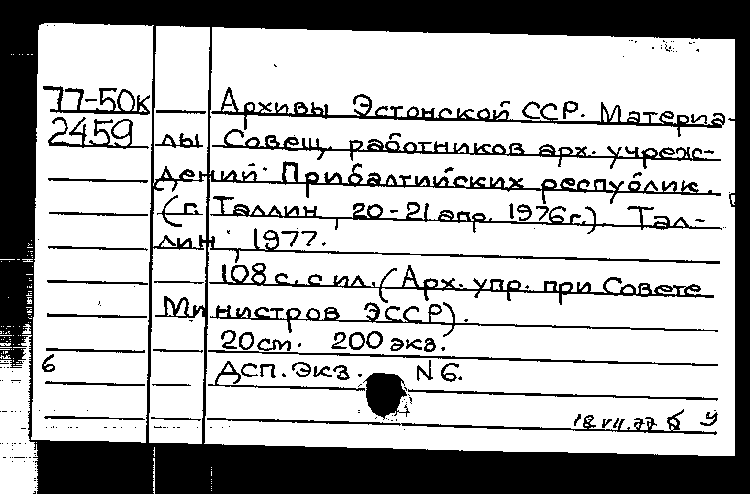 77-50к Архивы Эстонской ССР. Материа-
2459 лы Совещ. работников арх. учреж-
дений Прибалтийских республик.
(г. Таллин, 20-21 апр. 1976 г.) Тал-
лин, 1977.
108 с. с ил. (Арх. упр. при Совете
Министров ЭССР).
20 см. 200 экз.
6 Дсп. Экз. N 6.
18.VII.77